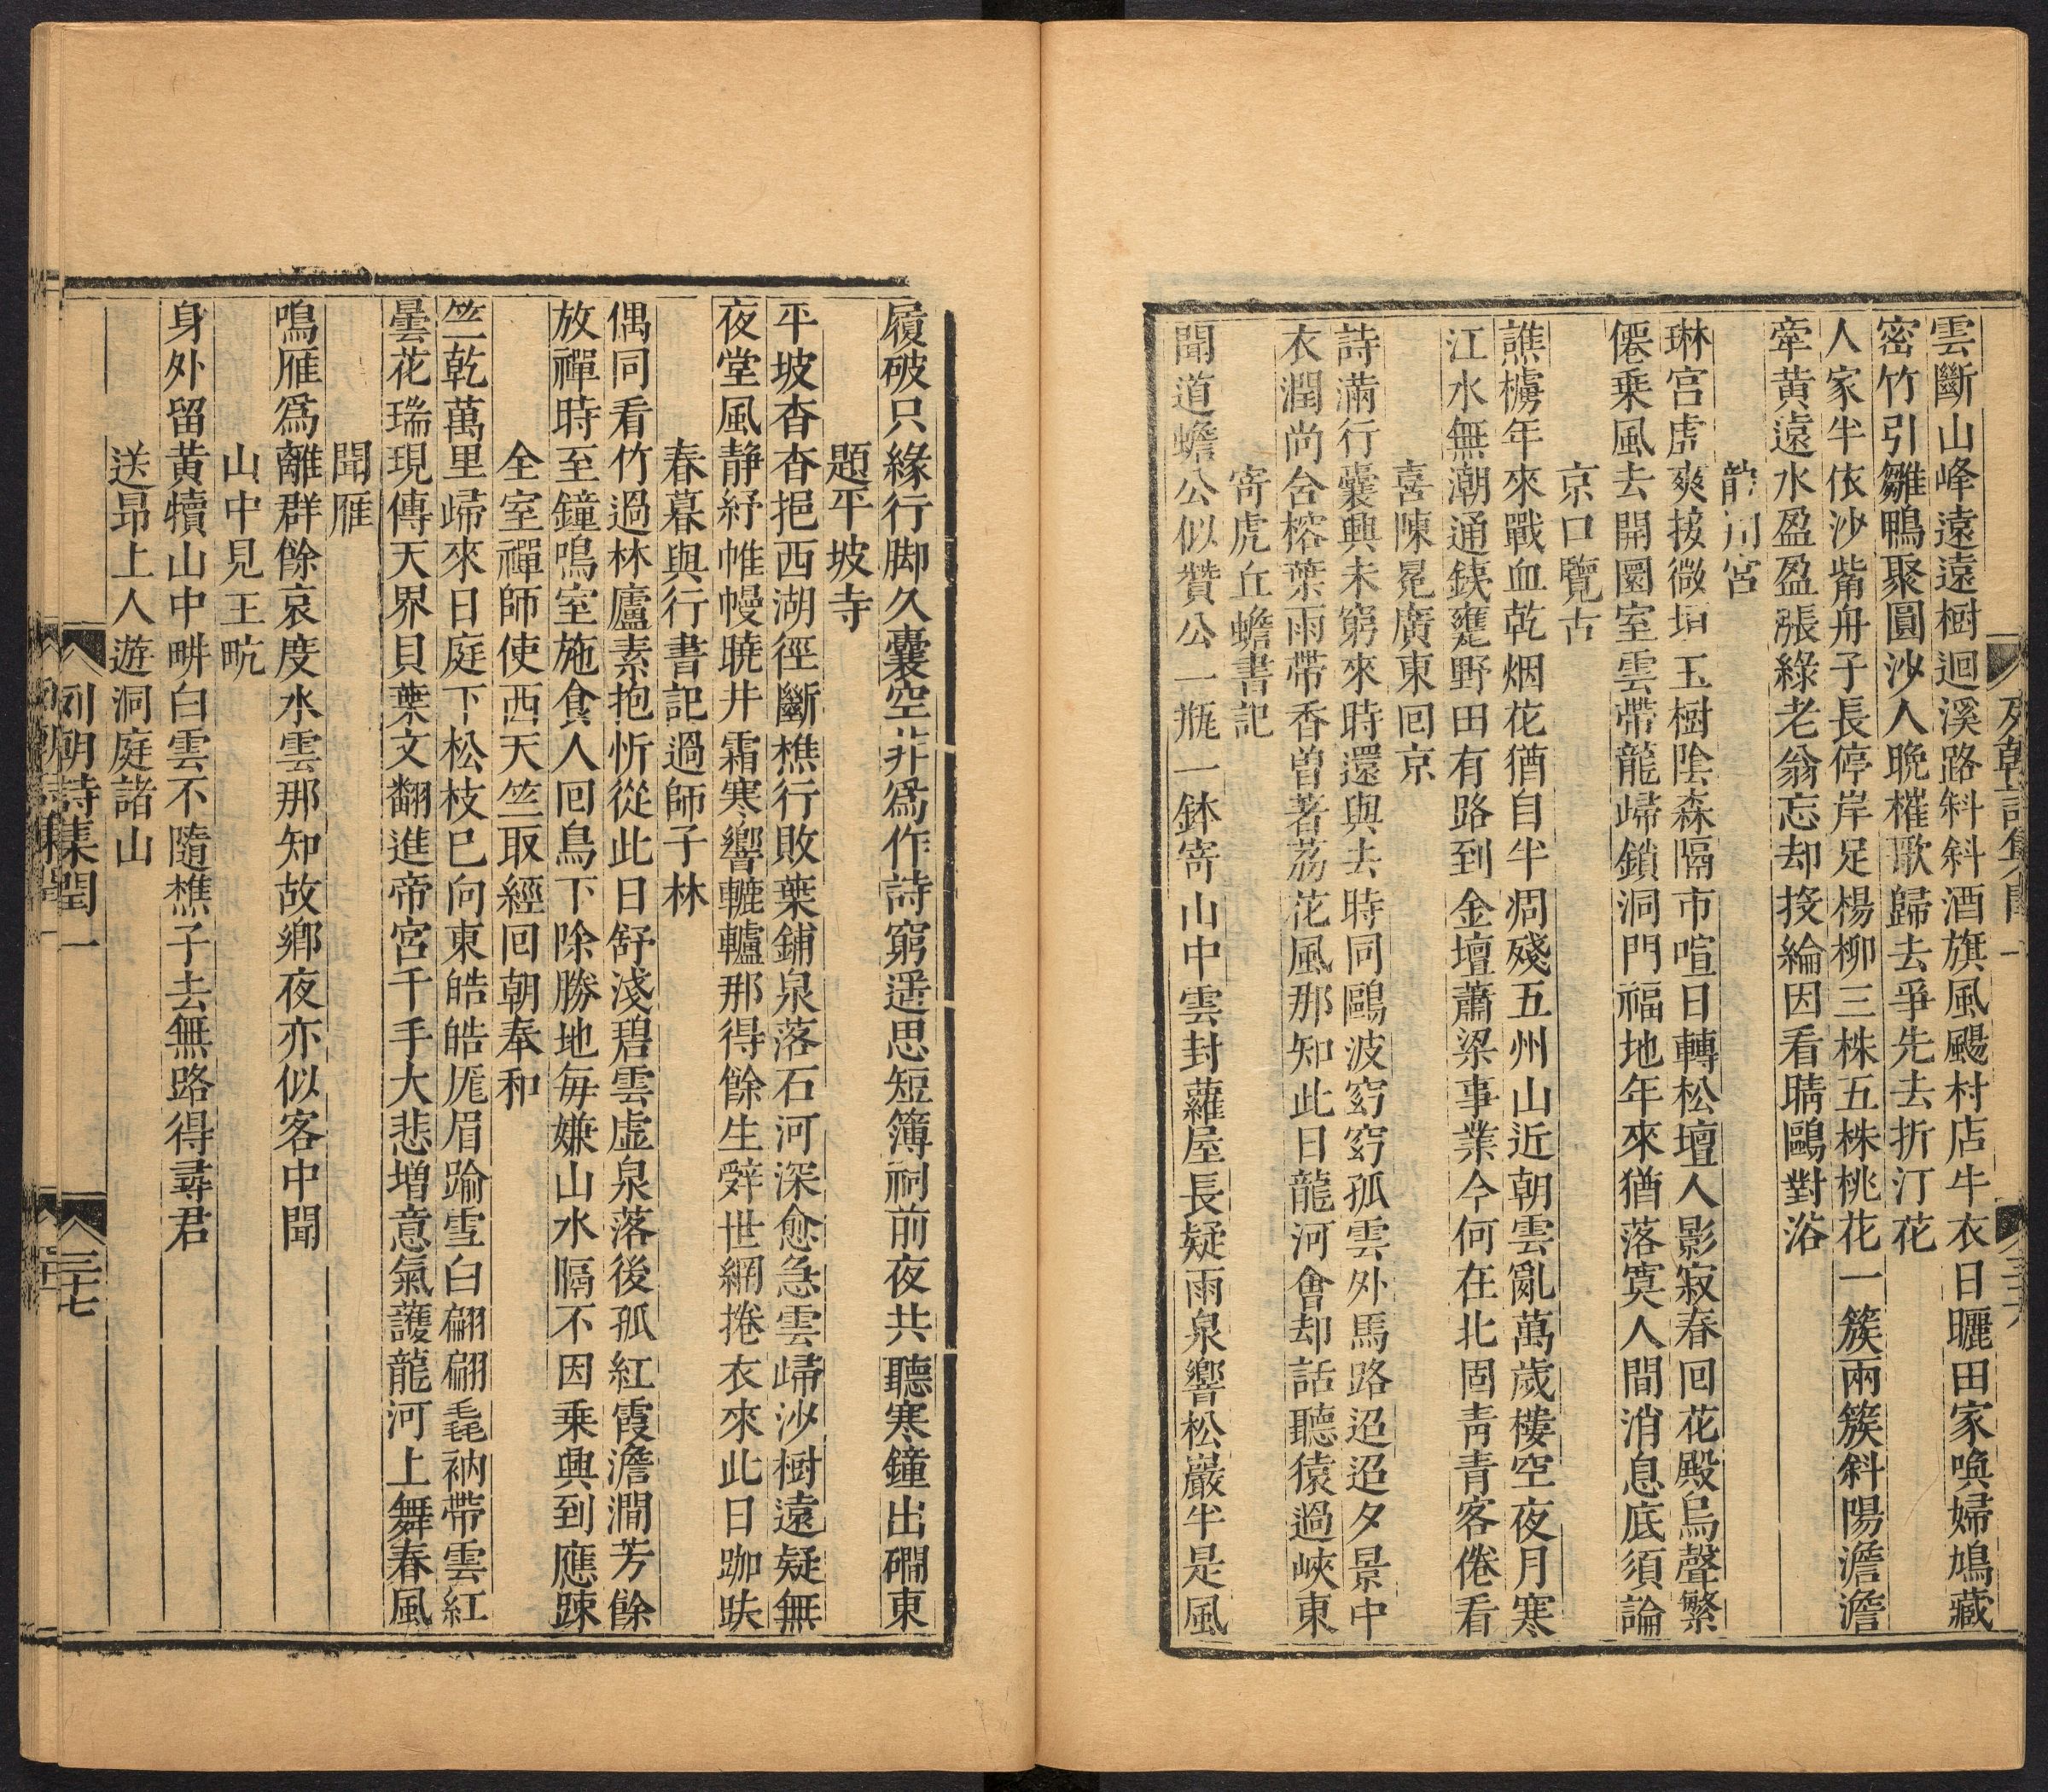 雲斷山峰遠遠樹迴溪路斜斜酒旗風颺村店牛衣日曬田家喚婦鳩藏
密竹引雛鴨聚圓沙人晩櫂歌歸去爭先去折汀花
人家半依沙觜舟子長停岸足楊柳三株五株桃花一簇兩簇斜陽澹澹
牽黃遠水盈盈漲綠老翁忘却投綸因看晴鷗對浴
龍河宮
琳宮虛爽接微垣玉樹陰森隔市喧日轉松壇人影寂春回花殿烏聲繁
僊乗風去開圜室雲帶龍歸鎖洞門福地年來猶落寞人間消息底須論
京口覽古
譙櫓年來戰血乾烟花猶自半凋殘五州山近朝雲亂萬歲樓空夜月寒
江水無潮通鐵甕野田有路到金壇蕭梁事業今何在北固青青客倦看
喜陳冕廣東回京
詩滿行囊興未窮來時還與去時同鷗波窈窈孤雲外馬路迢迢夕景中
衣潤尚含榕葉雨帶香曽著茘花風那知此日龍河會却話聽猿過峽東
寄虎丘蟾書記
聞道蟾公似贊公一瓶一鉢寄山中雲封蘿屋長疑雨泉響松巖半是風
列朝詩集閏一
三十六
履破只緣行脚久囊空非爲作詩窮遥思短簿祠前夜共聽寒鐘出磵東
題平坡寺
平坡杳杳挹西湖徑斷樵行敗葉鋪泉落石河深愈急雲歸沙樹遠疑無
夜堂風静紓帷幔曉井霜寒響轆轤那得餘生辤世網捲衣來此日跏趺
春暮與行書記過師子林
偶同看竹過林廬素抱忻從此日舒淺碧雲虛泉落後孤紅霞澹澗芳餘
放禪時至鐘鳴室施食人回鳥下除勝地毎嫌山水隔不因乗興到應踈
全室禪師使西天竺取經回朝奉和
竺乾萬里歸來日庭下松枝已向東皓皓厖眉踰雪白翩翩毳衲帶雲紅
曇花瑞現傳天界貝葉文翻進帝宮千手大悲増意氣護龍河上舞春風
聞雁
鳴雁爲離群餘哀度水雲那知故鄉夜亦似客中聞
山中見王畮
身外留黃犢山中畊白雲不隨樵子去無路得尋君
送昂上人遊洞庭諸山
列朝詩集閏一
三十七